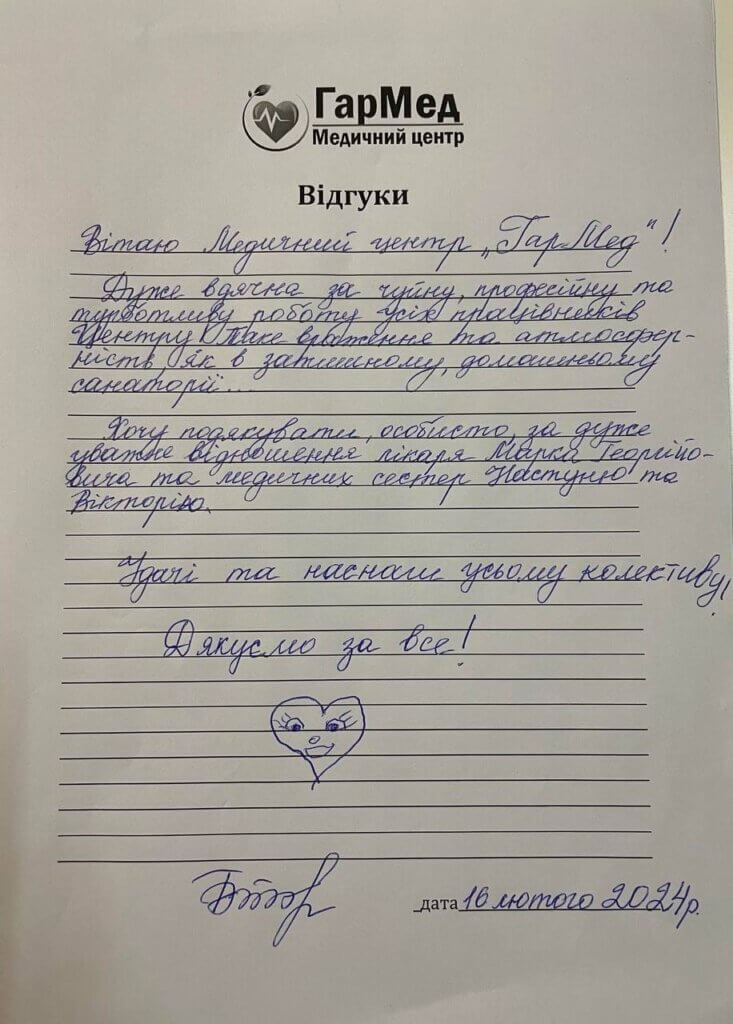 ГарМед
Медичний центр
Відгуки
Вітаю Медичний центр „ГарМед"!
Дуже вдячна за чуйну, професійну та
турботливу роботу усіх працівників
Центру! Таке враження та атмосфер-
ність, як в затишному, домашньому
санаторії...
Хочу подякувати, особисто, за дуже
уважне відношення лікаря Марка Георгійо-
вича та медичних сестер Настуню та
Вікторію.
Удачі та наснаги усьому колективу!
Дякуємо за все!
дата 16 лютого 2024р.